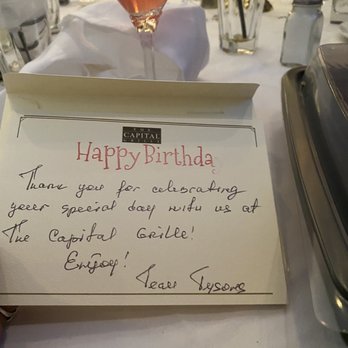 THE
CAPITAL
GRILLE
Happy Birthda
Thank you for celebrating
your special day with us at
The Capital Grille!
Enjoy!
Team Tysons